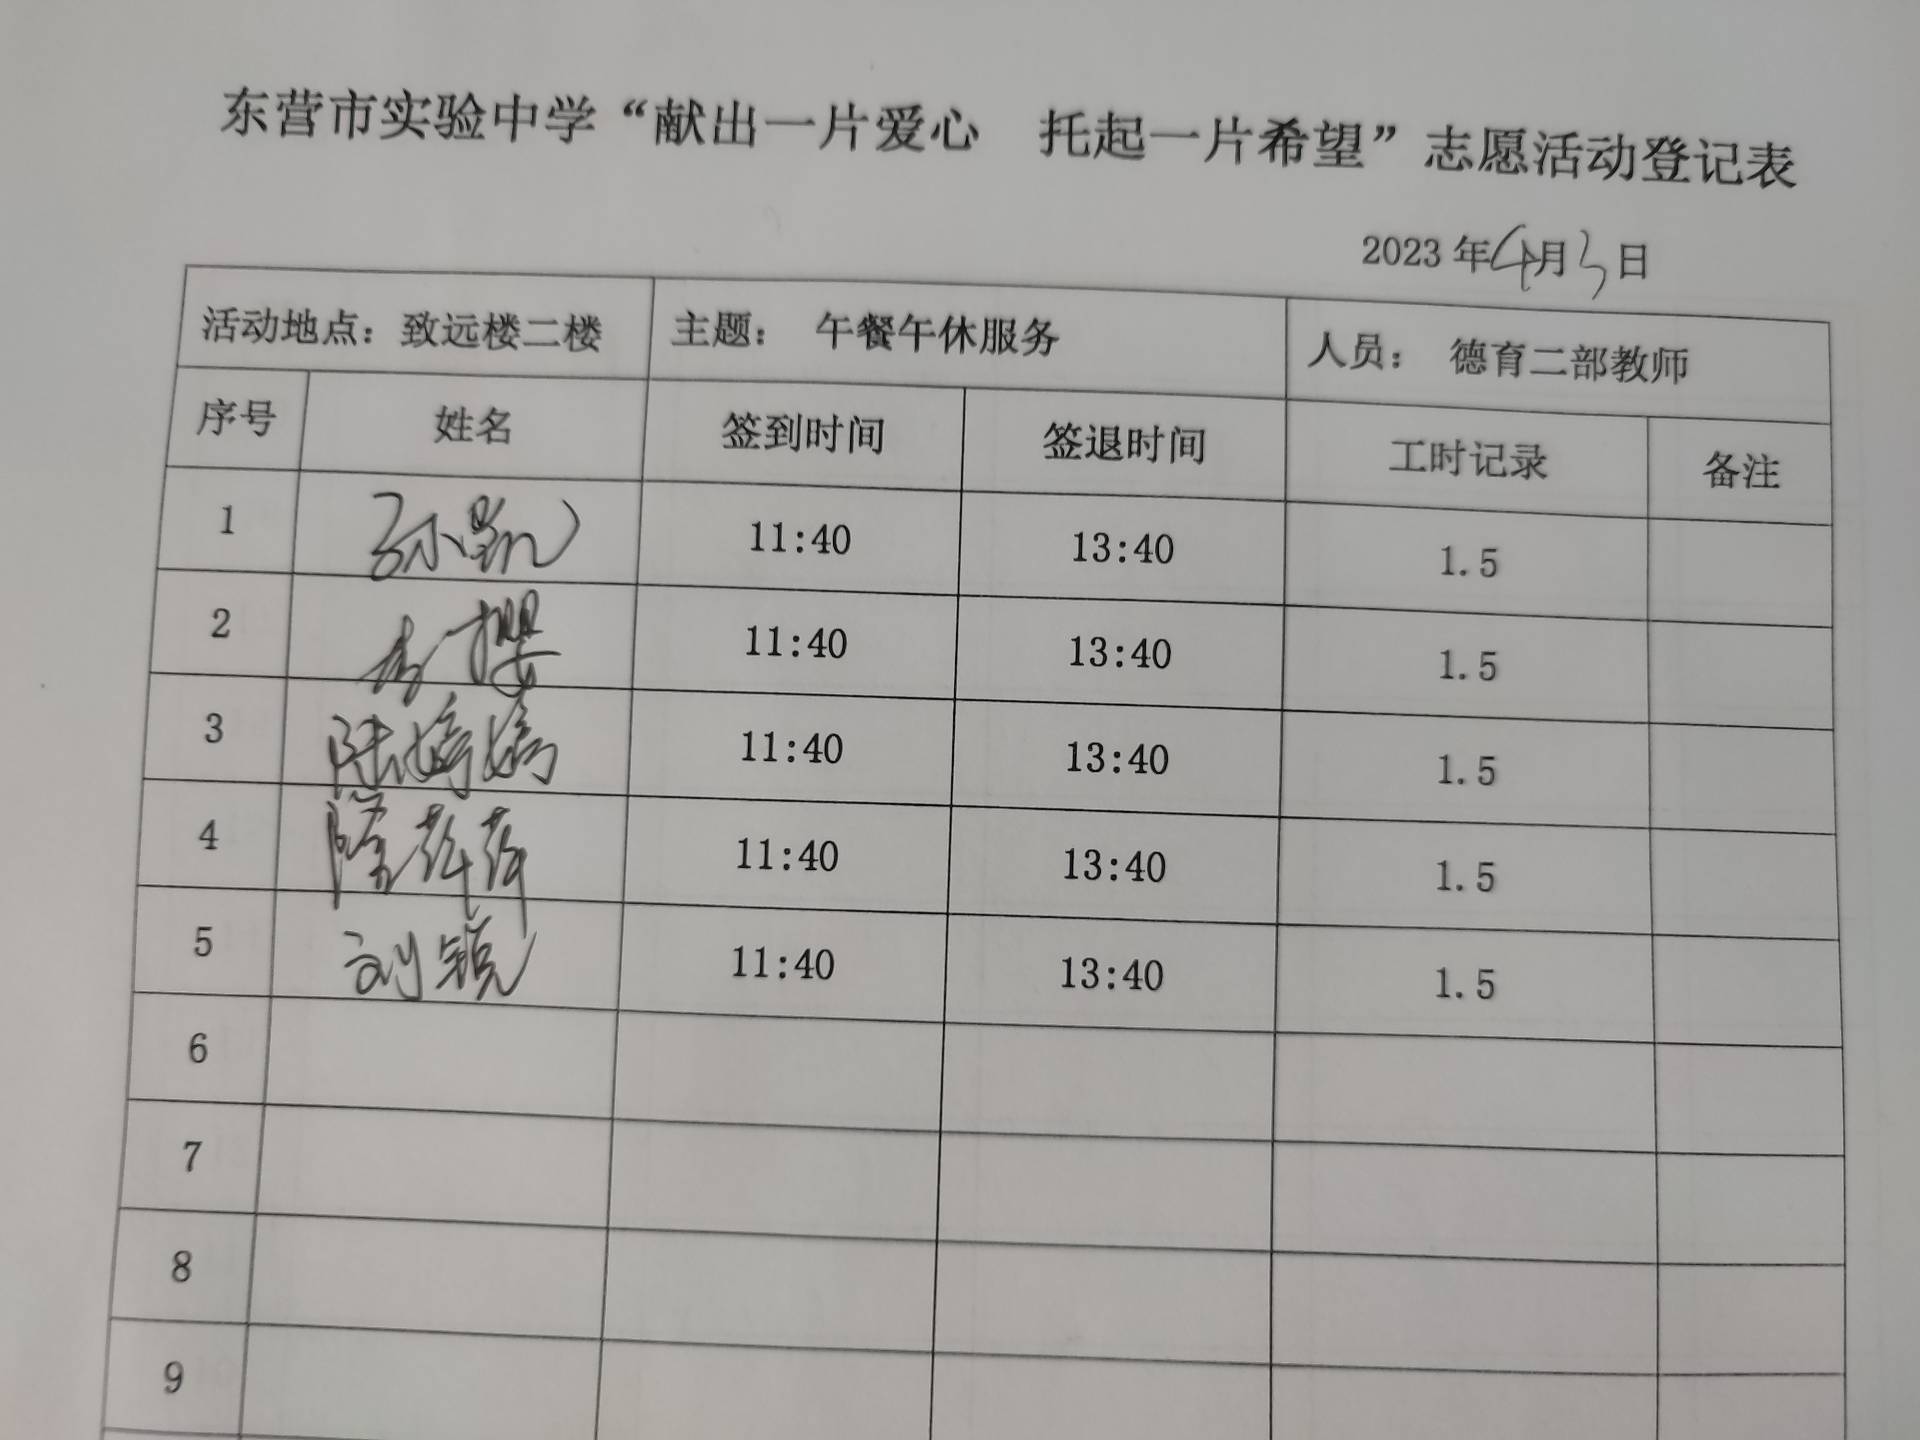 东营市实验中学“献出一片爱心 托起一片希望”志愿活动登记表
2023年4月3日
活动地点：致远楼二楼 主题： 午餐午休服务 人员： 德育二部教师
序号 姓名 签到时间 签退时间 工时记录 备注
1 孙凯 11:40 13:40 1.5
2 李樱 11:40 13:40 1.5
3 陆婷婷 11:40 13:40 1.5
4 11:40 13:40 1.5
5 刘锐 11:40 13:40 1.5
6
7
8
9